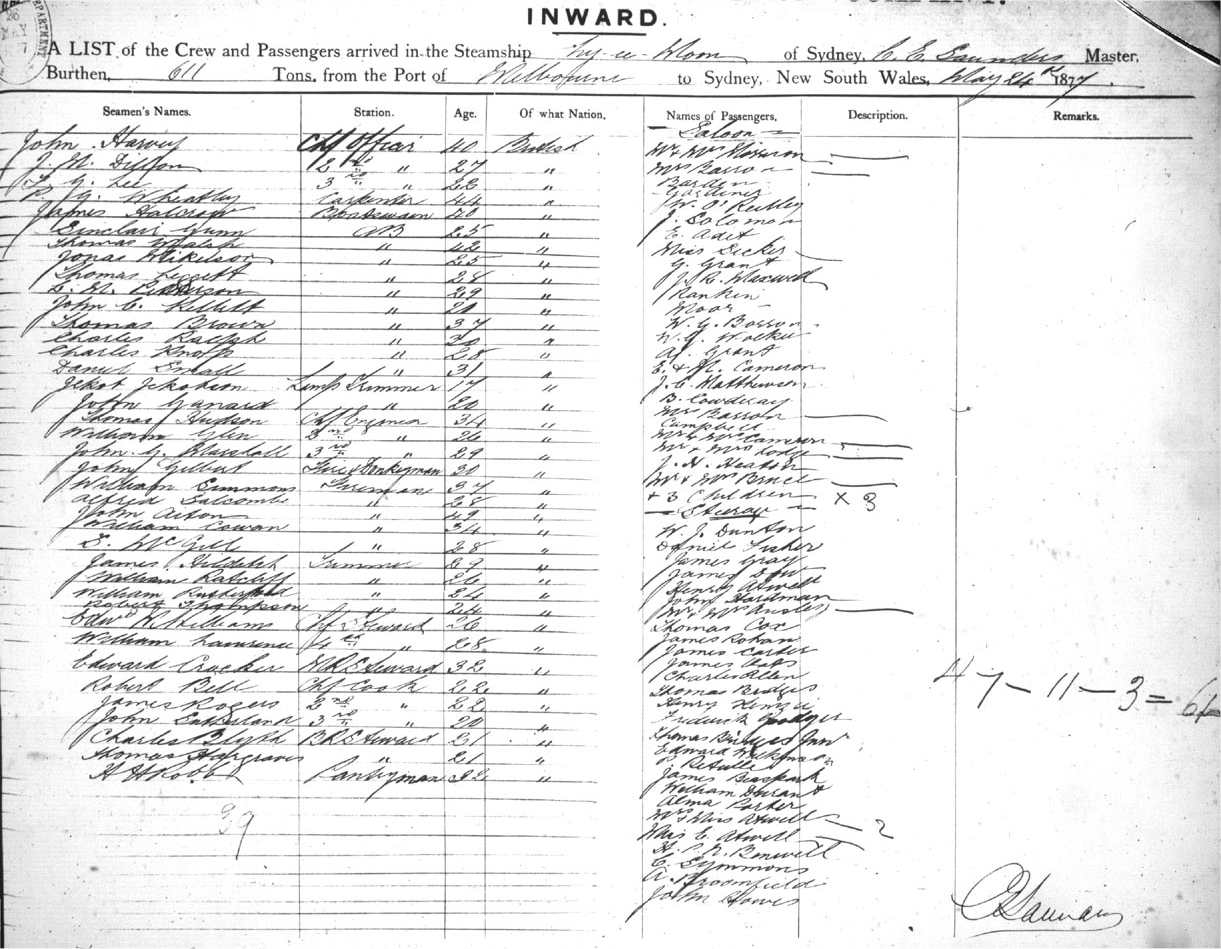 INWARD.
A LIST of the Crew and Passengers arrived in the Steamship Ly-ee-Moon of Sydney, C. E. Saunders Master,
Burthen, 611 Tons, from the Port of Melbourne to Sydney, New South Wales, May 24th 1877.
Seamen's Names. Station. Age. Of what Nation. Names of Passengers. Description. Remarks.
— Saloon —
John Harvey Chf Officer 40 British Mr & Mrs Morrison
J. M. 2nd " 27 " Mrs Barron
Lee 3rd " 22 " Barden
G. Wheatley Carpenter 44 " Gardiner
James Halcrow Boatswain 40 " W. O'Reilly
Sinclair Gunn AB 25 " J. Solomon
Thomas Walsh " 42 " E. Adet
Jonas Mikelson " 25 " Miss Decker
Thomas Leggett " 28 " G. Grant
" 29 " J. R. Maxwell
John C. Kellett " 20 " Ranken
Thomas Brown " 37 " Moor
Charles Ralph " 30 " W. G. Barron
Charles Knopp " 28 " W. G. Walker
Daniel Small " 31 " A. Grant
Jekob Jekobson Lamp Trimmer 17 " E. & M. Cameron
John " 20 " J. C. Matthewson
Thomas Hudson Chf Engineer 34 " B. Cowderay
William Glen 2nd " 26 " Mrs Barron
John G. Marshall 3rd " 29 " Campbell
John Gilbert Fire & Donkeyman 30 " Mr & Mrs Cameron
William Simmons Fireman 37 " Mr & Mrs Lodge
Alfred Balcombe " 28 " J. H. Heaton
John Aiton " 49 " Mr & Mrs Bruce
William Cowan " 34 " + 3 Children x 3
S. McGill " 28 " — Steerage —
James Hilditch Trimmer 29 " W. J. Dunton
William Ratcliff " 26 " Daniel Fisher
William Rutherford " 24 " James Gray
Robert Thompson " 24 " James Dow
Edwd W. Williams Chf Steward 26 " Henry Atwell
William Lawrence 4th " 28 " John Hardman
Edward Crocker 32 " Mr & Mrs
Robert Bell Chf Cook 22 " Thomas Cox
James Rogers 2nd " 22 " James Rohan
John Sutherland 3rd " 20 " James Carter
Charles 21 " James
Thomas Hargraves " 21 " Charles Allen
A H Robb Pantryman 22 " Thomas Bridges
39
Henry
Frederick
Thomas Bridges Junr
Edward
James
William Durant
Alma Parker
Mrs & Miss Atwell 2
Miss E. Atwell
H. P. R. Bonwell
C. Symmons
A. Broomfield
John Howes
47 – 11 – 3 = 61
C E Saunders